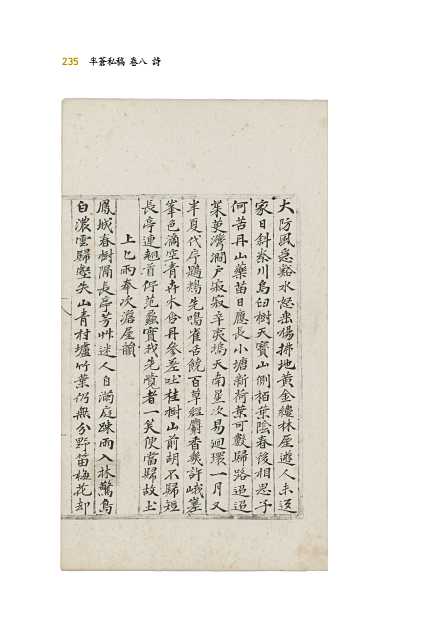 235 半蒼私稿 卷八 詩
大防風急谿水垂楊拂地黃金縷林屋遊人未返
家日斜秦川烏臼樹天寶山側栢葉陰春後相思子
何苦丹山藥苗日應長小塘新荷葉可數歸路迢迢
茱萸灣澗戶寂寂辛夷塢天南星次易迴環一月又
半夏代序鷓鴣先鳴雀舌饒百草經麝香幾許峨
峯色滴空青卉木兮丹參差桂樹山前胡不歸短
長亭連翹首佇范蠡實我先者一笑便當歸故土
上巳雨奉次澹屋韻
鳳城春樹隔長亭芳艸迷人自滿庭疎雨入林驚鳥
白濃雲歸壑失山青村墟竹葉仍無分野笛梅花却